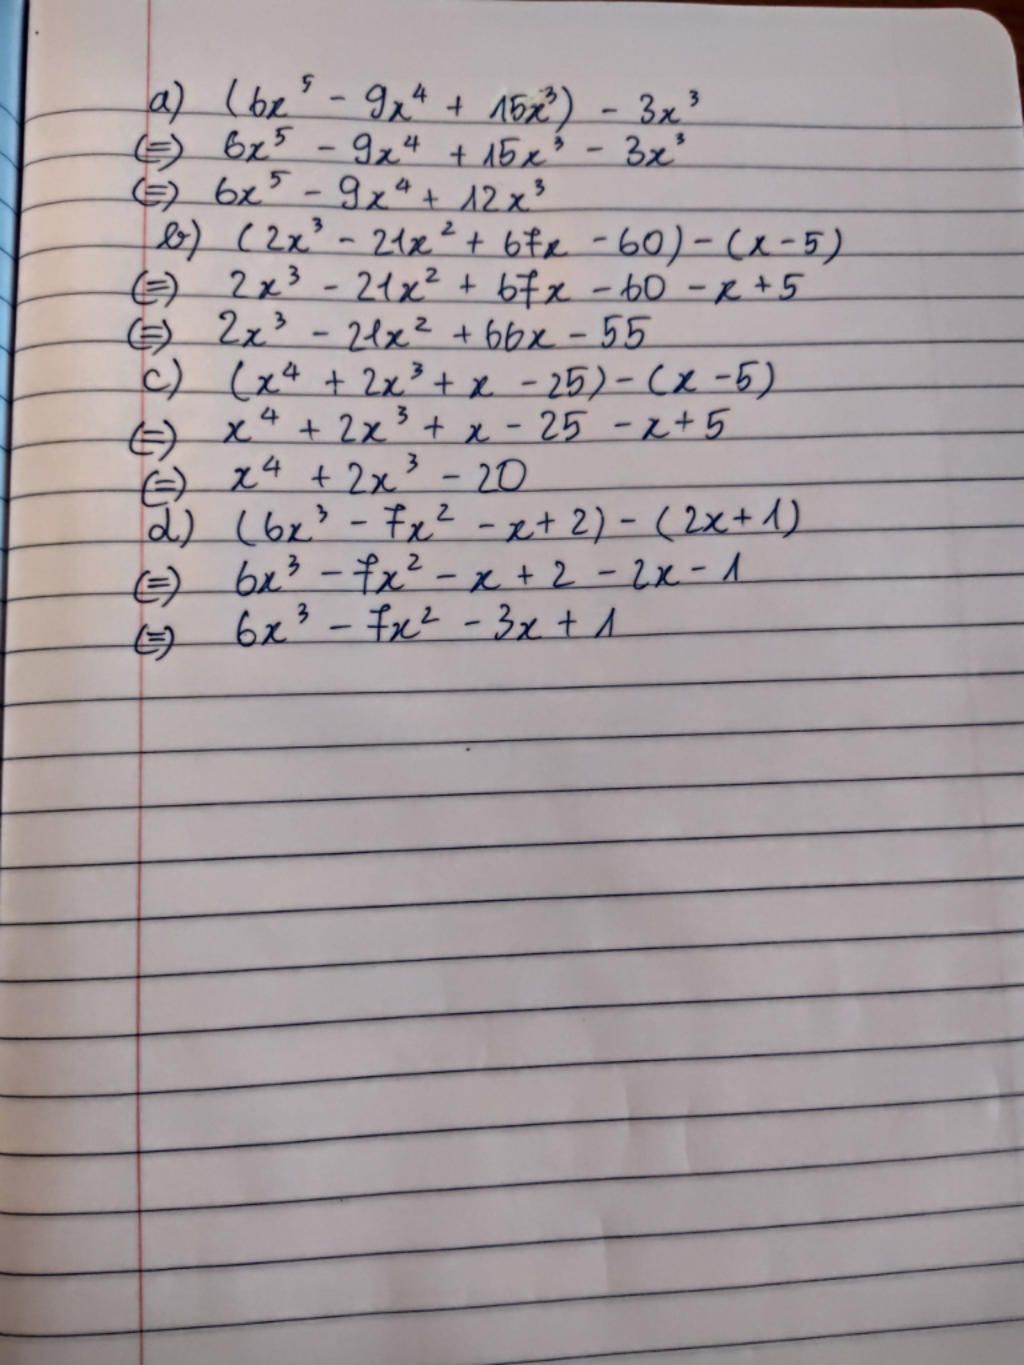 a) (6x⁵ - 9x⁴ + 15x³) - 3x³
(=) 6x⁵ - 9x⁴ + 15x³ - 3x³
(=) 6x⁵ - 9x⁴ + 12x³
b) (2x³ - 21x² + 67x - 60) - (x - 5)
(=) 2x³ - 21x² + 67x - 60 - x + 5
(=) 2x³ - 21x² + 66x - 55
c) (x⁴ + 2x³ + x - 25) - (x - 5)
(=) x⁴ + 2x³ + x - 25 - x + 5
(=) x⁴ + 2x³ - 20
d) (6x³ - 7x² - x + 2) - (2x + 1)
(=) 6x³ - 7x² - x + 2 - 2x - 1
(=) 6x³ - 7x² - 3x + 1